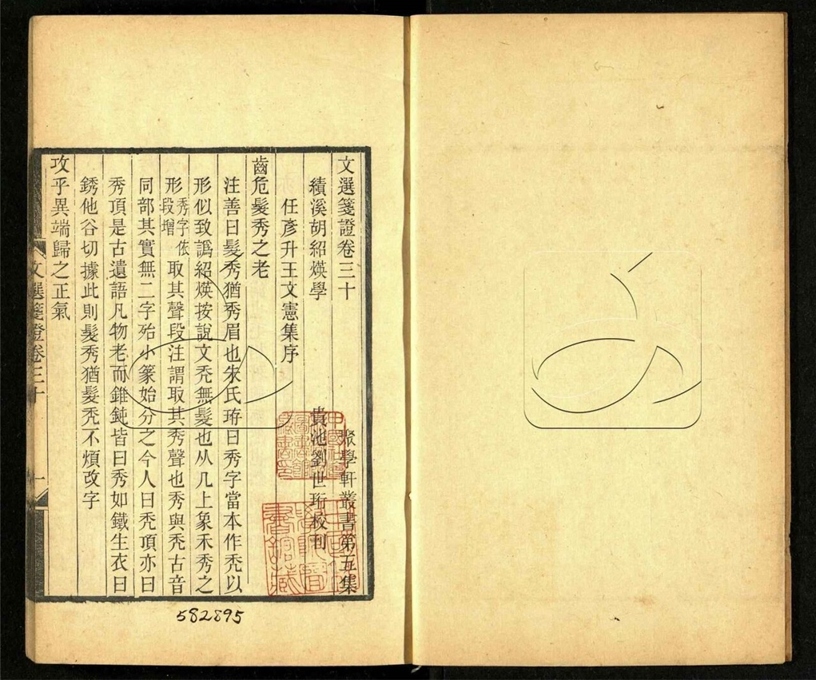 文選箋證卷三十
聚學軒叢書第五集
績溪胡紹煐學
貴池劉世珩校刊
任彥升王文憲集序
齒危髮秀之老
注善曰髮秀猶秀眉也朱氏珔曰秀字當本作禿以
形似致譌紹煐按說文禿無髮也从几上象禾秀之
形秀字依段增取其聲段注謂取其秀聲也秀與禿古音
同部其實無二字殆小篆始分之今人曰禿頂亦曰
秀頂是古遺語凡物老而錐鈍皆曰秀如鐵生衣曰
銹他谷切據此則髮秀猶髮禿不煩改字
攻乎異端歸之正氣
文選箋證卷三十
一
582895